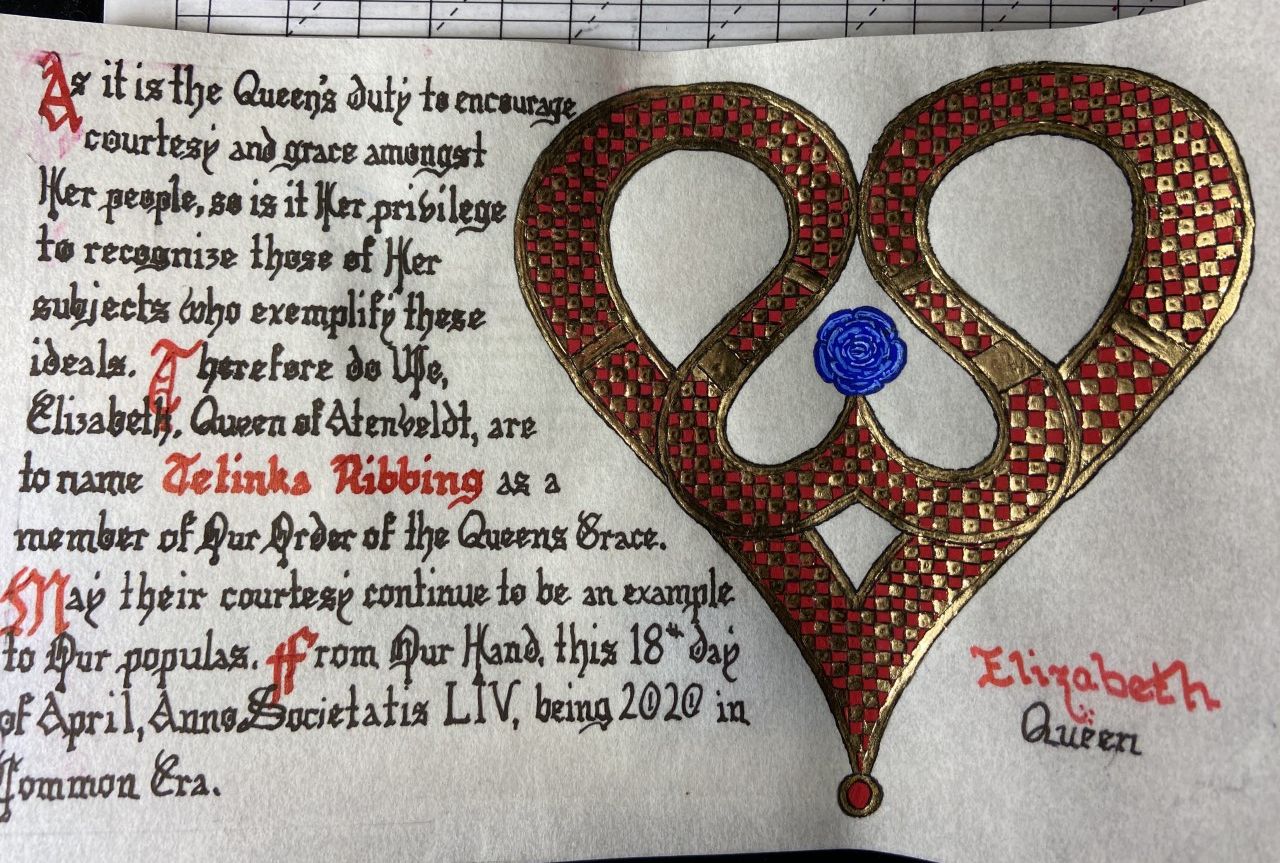 As it is the Queen's duty to encourage
courtesy and grace amongst
Her people, so is it Her privilege
to recognize those of Her
subjects who exemplify these
ideals. Therefore do We,
Elizabeth, Queen of Atenveldt, are
to name Jelinka Ribbing as a
member of Our Order of the Queens Grace.
May their courtesy continue to be an example
to Our populas. ffrom Our Hand, this 18th day
of April, Anno Societatis LIV, being 2020 in
Common Era.
Elizabeth
Queen